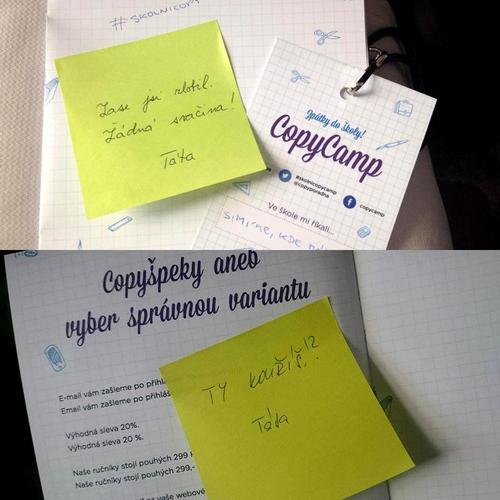 #SKOLNICOPY
Zase jsi zlobil.
Žádná svačina!
Táta
Zpátky do školy!
CopyCamp
#skolnicopycamp
@copyporadna
copycamp
Ve škole mi říkali...
SIMI-NE, KDE
Copyšpeky aneb
vyber správnou variantu
E-mail vám zašleme po
Email vám zašleme po
Výhodná sleva 20%.
Výhodná sleva 20 %.
Naše ručníky stojí pouhých 299
Naše ručníky stojí pouhých 299,-
vaše webové
TY KOUŘÍŠ!?
Táta